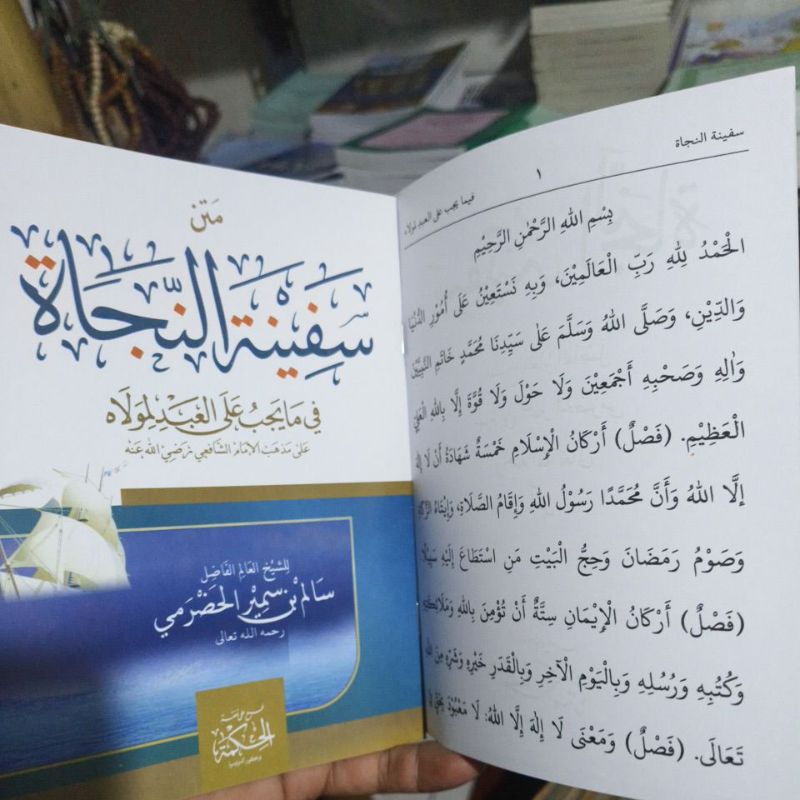 متن
سفينة النجاة
في ما يجب على العبد لمولاه
على مذهب الإمام الشافعي رضي الله عنه
للشيخ العالم الفاضل
سالم بن سمير الحضرمي
رحمه الله تعالى
الحكمة
سفينة النجاة
١
فيما يجب على العبد لمولاه
بِسْمِ اللهِ الرَّحْمٰنِ الرَّحِيْمِ
الْحَمْدُ لِلهِ رَبِّ الْعَالَمِيْنَ، وَبِهِ نَسْتَعِيْنُ عَلَى أُمُوْرِ الدُّنْيَا
وَالدِّيْنِ، وَصَلَّى اللهُ وَسَلَّمَ عَلَى سَيِّدِنَا مُحَمَّدٍ خَاتَمِ النَّبِيِّيْنَ
وَاٰلِهِ وَصَحْبِهِ أَجْمَعِيْنَ وَلَا حَوْلَ وَلَا قُوَّةَ إِلَّا بِاللهِ الْعَلِيِّ
الْعَظِيْمِ. (فَصْلٌ) أَرْكَانُ الْإِسْلَامِ خَمْسَةٌ شَهَادَةُ أَنْ لَا إِلٰهَ
إِلَّا اللهُ وَأَنَّ مُحَمَّدًا رَسُوْلُ اللهِ وَإِقَامُ الصَّلَاةِ، وَإِيْتَاءُ الزَّكَاةِ
وَصَوْمُ رَمَضَانَ وَحِجُّ الْبَيْتِ مَنِ اسْتَطَاعَ إِلَيْهِ سَبِيْلًا
(فَصْلٌ) أَرْكَانُ الْإِيْمَانِ سِتَّةٌ أَنْ تُؤْمِنَ بِاللهِ وَمَلَائِكَتِهِ
وَكُتُبِهِ وَرُسُلِهِ وَبِالْيَوْمِ الْآخِرِ وَبِالْقَدَرِ خَيْرِهِ وَشَرِّهِ مِنَ اللهِ
تَعَالَى. (فَصْلٌ) وَمَعْنَى لَا إِلٰهَ إِلَّا اللهُ: لَا مَعْبُوْدَ بِحَقٍّ